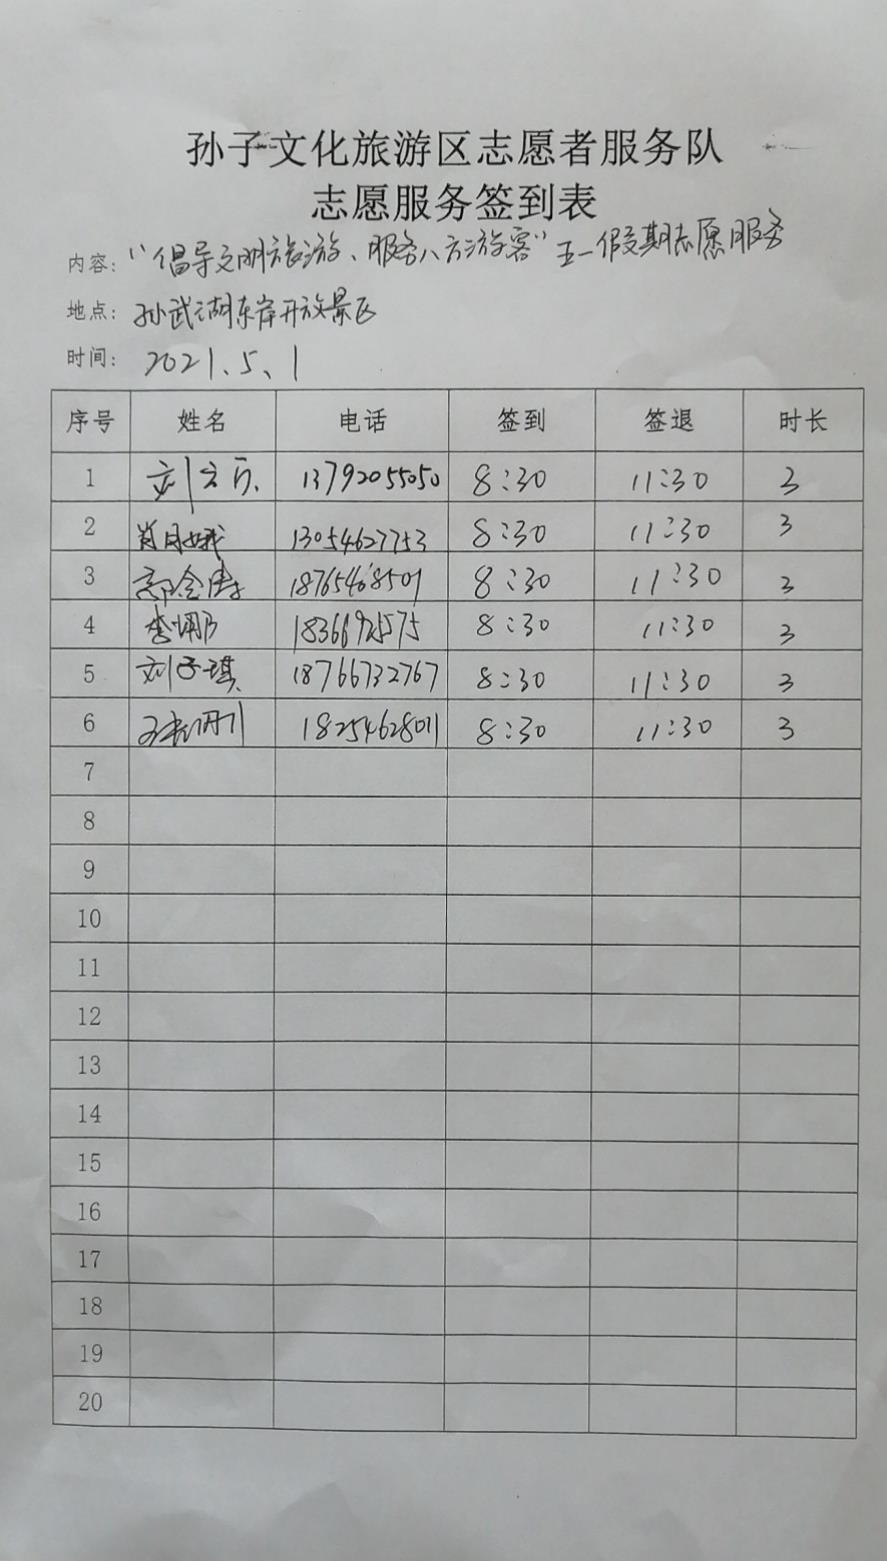 孙子文化旅游区志愿者服务队
志愿服务签到表
内容: “倡导文明旅游、服务八方游客” 五一假期志愿服务
地点: 孙武湖东岸开放景区
时间: 2021.5.1
序号 姓名 电话 签到 签退 时长
1 刘 13792055050 8:30 11:30 3
2 肖月娥 13054627753 8:30 11:30 3
3 18765468501 8:30 11:30 3
4 李娜 18366925575 8:30 11:30 3
5 刘子琪 18766732767 8:30 11:30 3
6 18254628011 8:30 11:30 3
7
8
9
10
11
12
13
14
15
16
17
18
19
20